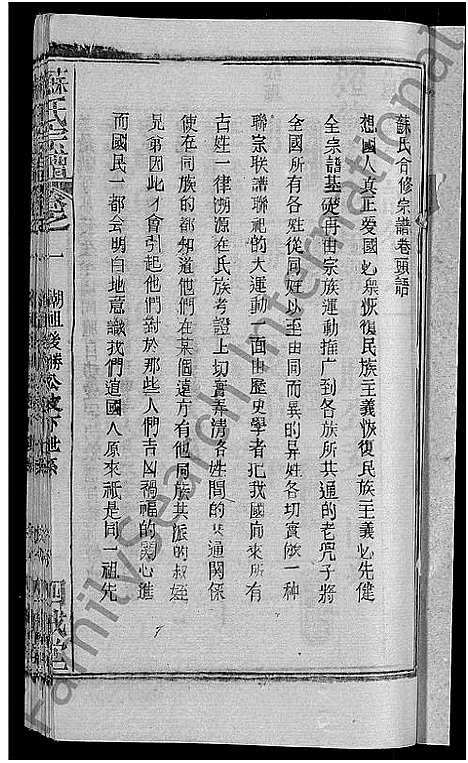 蘇氏合修宗譜卷頭語
想國人真正爱國必衆恢復民族主義恢復民族主義必先健
全宗譜基礎再由宗族運動推广到各族所共通的老兜子將
全國所有各姓從同姓以至由同而異的异姓各切實做一种
聯宗联譜聯祀的大運動一面由歷史學者把我國向來所有
古姓一律溯源在氏族考證上切實弄清各姓間的共通関係
使在同族的都知道他們在某個遠方有他同族共派的叔姪
兄弟因此才會引起他們對於那些人們吉凶禍福的関心進
而國民一都会明白地意識我們這國人原來祇是同一祖先
蘇氏宗譜 卷之一
朝祖後勝公支下世系
FamilySearch International